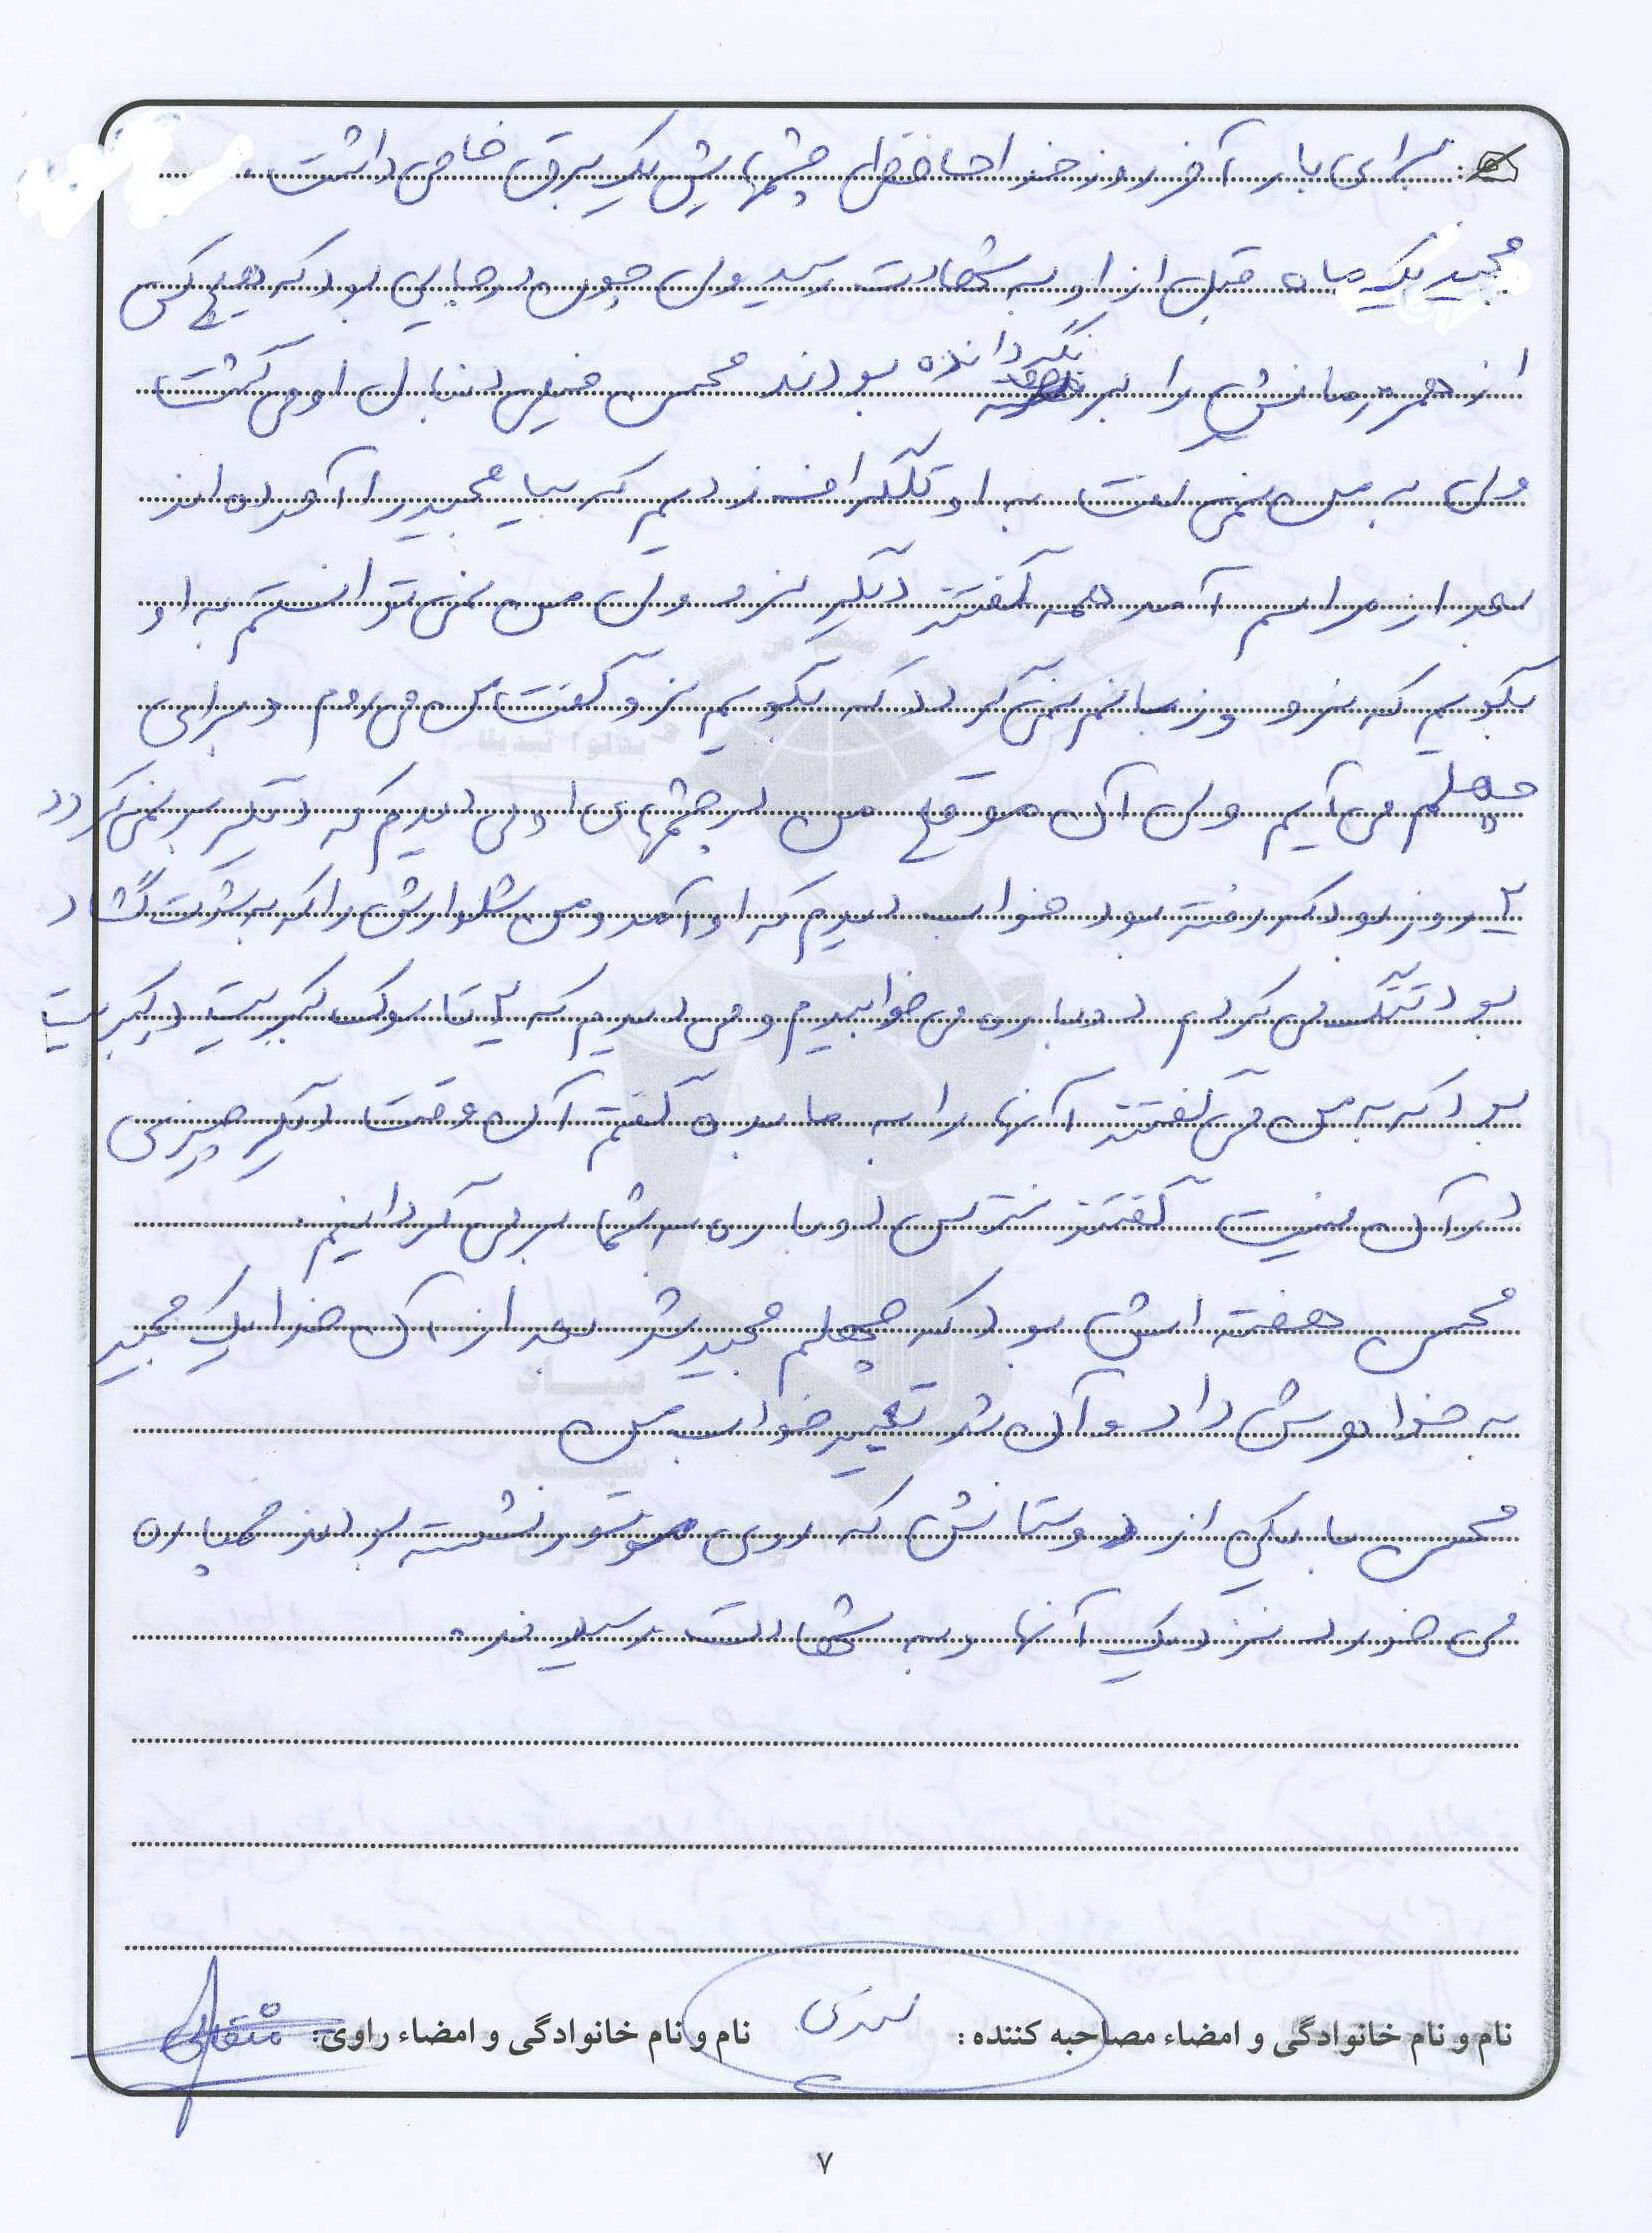 برای بار آخر روز خداحافظی چشمهایش یک برق خاصی داشت.
مجید یک ماه قبل از او به شهادت رسید ولی چون در جایی بود که هیچ کس
از همرزمانش را بر نگردانده بودند محسن خیلی دنبال او می گشت
ولی به من نمی گفت به او تلگراف زدیم که بیا مجید را آورده اند
بعد از مراسم آمد همه گفتند دیگر نرو ولی من نمی توانستم به او
بگویم که نرو و زبانم نمی گردد که بگویم نرو گفت من می روم و برای
چهلم می آیم ولی آن موقع من در چشمهای او می دیدم که دیگر بر نمی گردد
۲ روز بود که رفته بود خواب دیدم که او آمد و من شلوارش را که به شدت گشاد
بود تنگ می کردم دوباره می خوابیدم و می دیدم که ۲ تا سوک کبریت در کبریت
بود که به من می گفتند آنها را به ما بده گفتم آن وقت دیگر چیزی
در آن نیست گفتند نترس دوباره به شما بر می گردانیم.
محسن هفته اش بود که چهلم مجید شد بعد از آن خدا یک مجید
به خواهرش داد و آن شد تعبیر خواب من
محسن با یکی از دوستانش که روی موتور نشسته بودند خمپاره
می خورد نزدیک آنها و به شهادت رسیدند.
نام و نام خانوادگی و امضاء مصاحبه کننده: نام و نام خانوادگی و امضاء راوی: مثقالی
۷